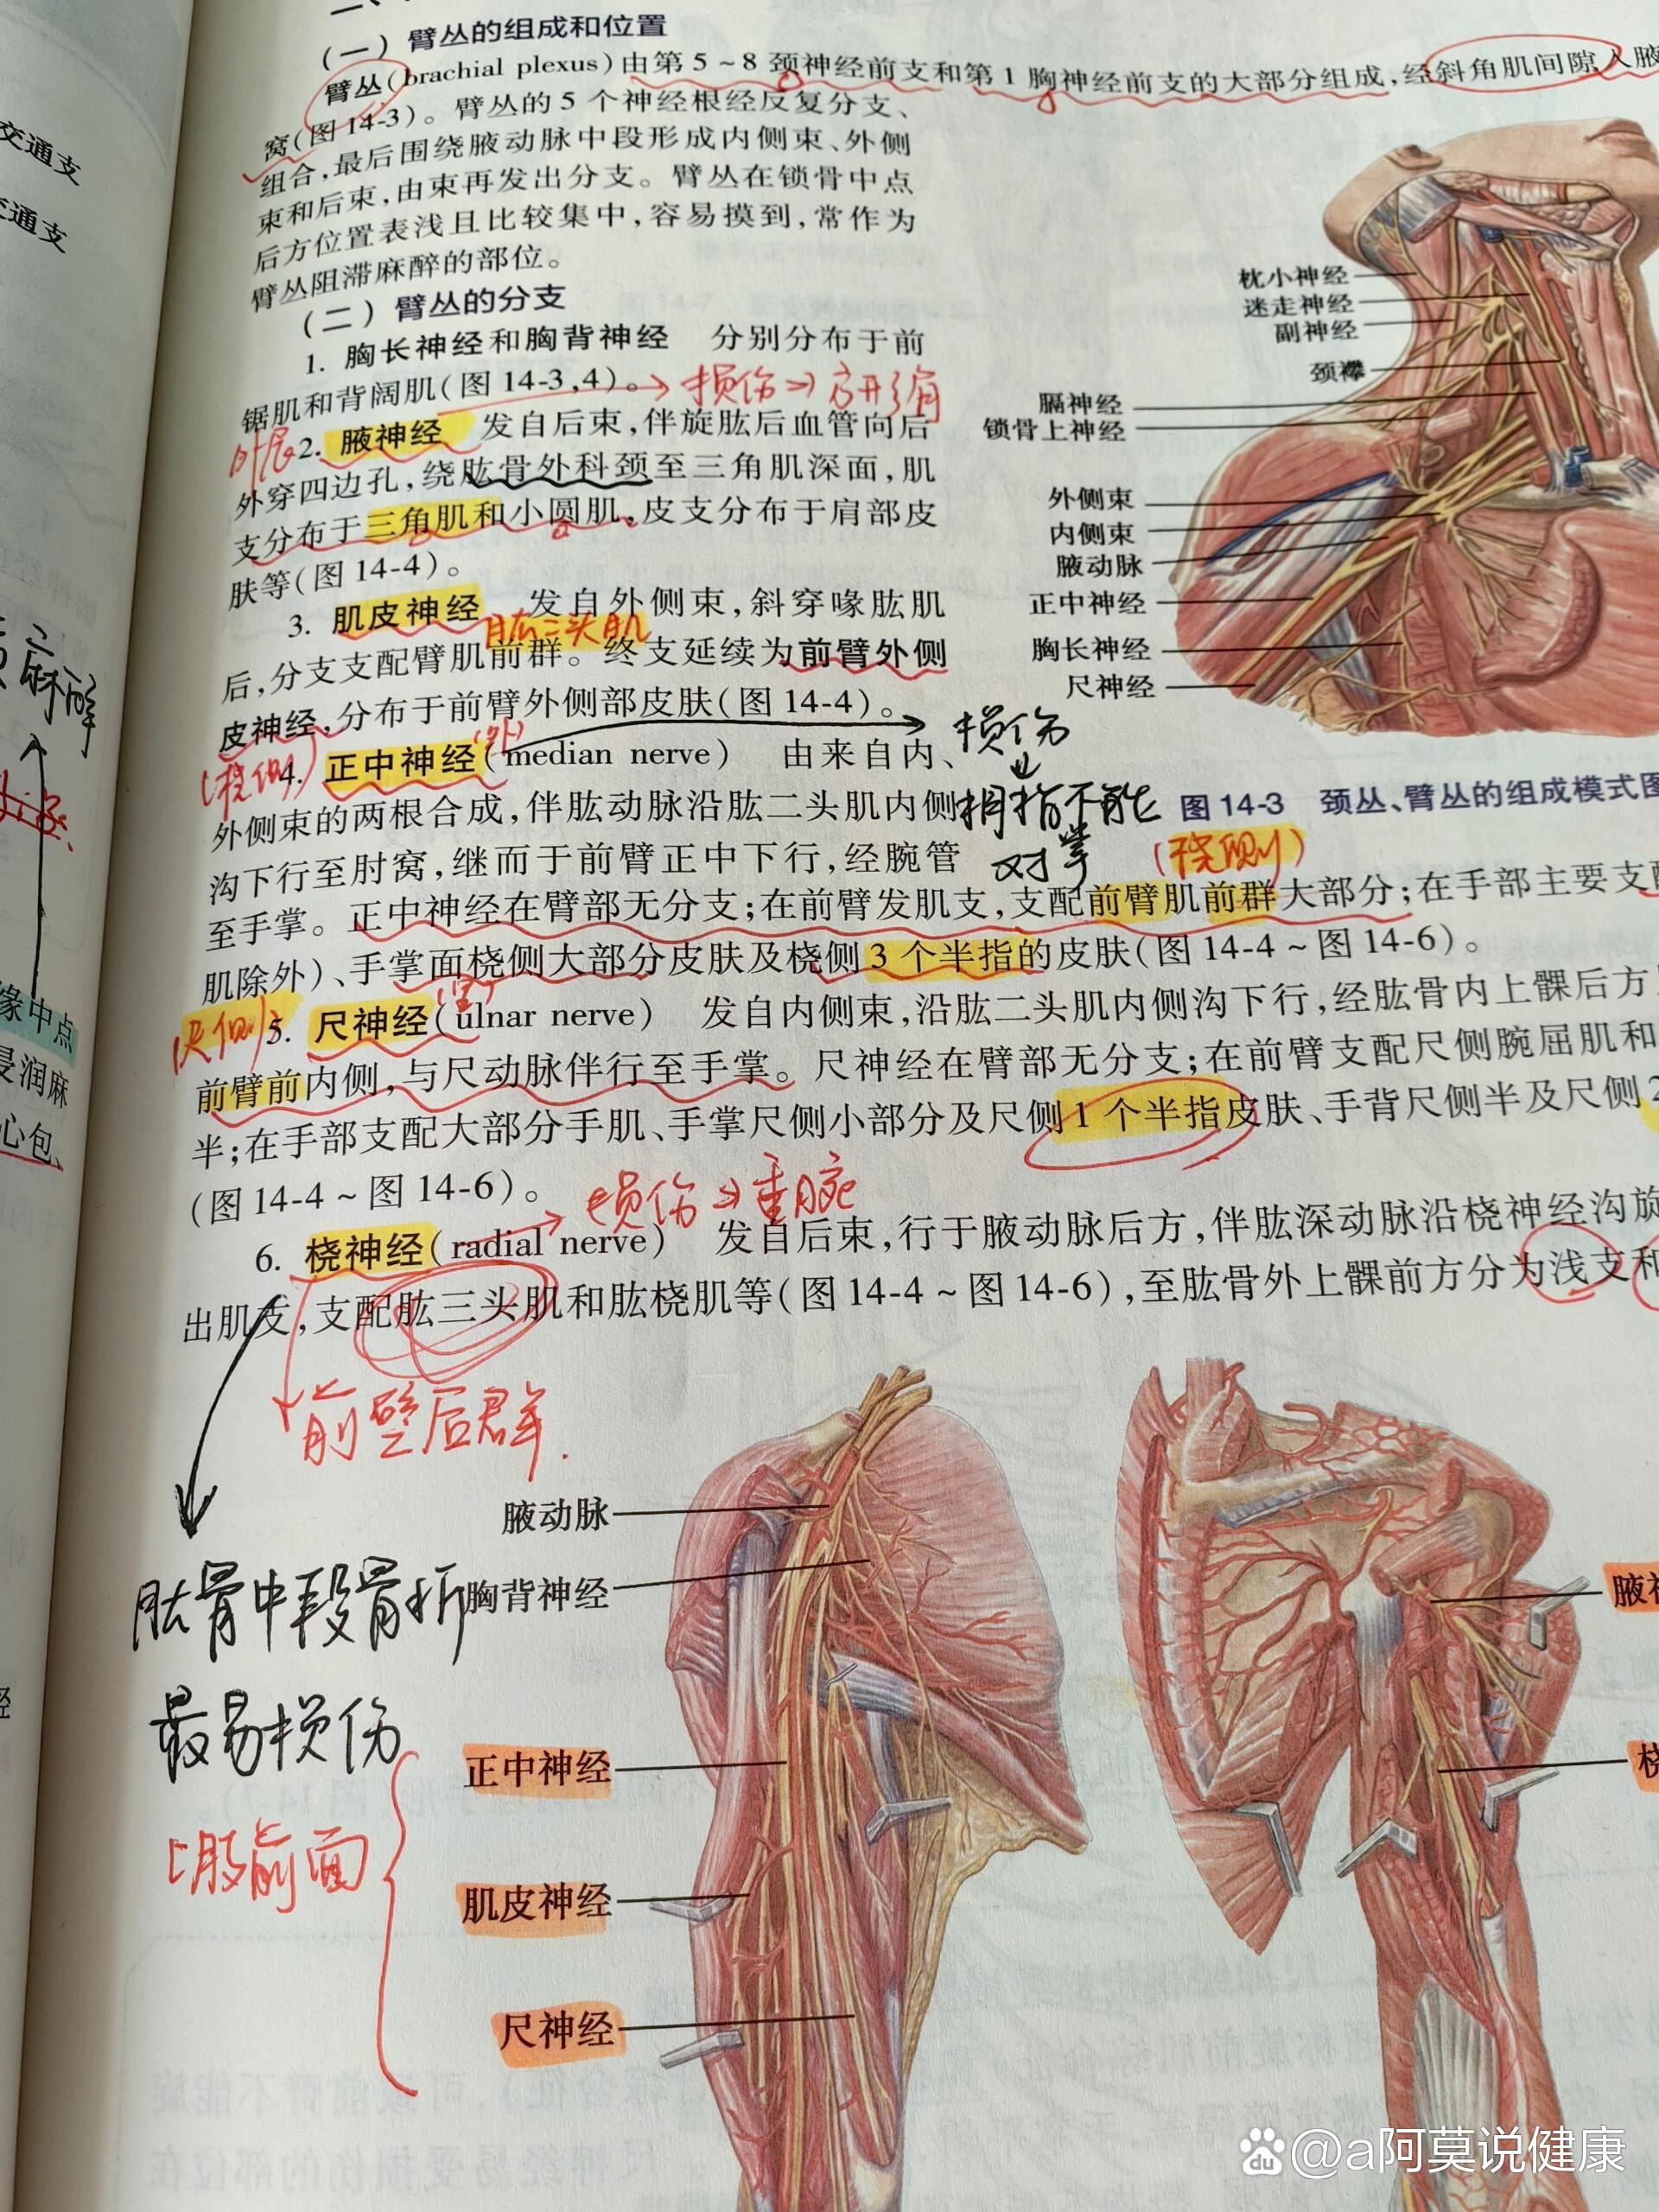 交通支
交通支
麻醉
缘中点
浸润麻
心包、
(一) 臂丛的组成和位置
臂丛(brachial plexus)由第5~8颈神经前支和第1胸神经前支的大部分组成,经斜角肌间隙入腋
窝(图14-3)。臂丛的5个神经根经反复分支、
组合,最后围绕腋动脉中段形成内侧束、外侧
束和后束,由束再发出分支。臂丛在锁骨中点
后方位置表浅且比较集中,容易摸到,常作为
臂丛阻滞麻醉的部位。
(二) 臂丛的分支
1. 胸长神经和胸背神经 分别分布于前
锯肌和背阔肌(图14-3,4)。
损伤⇒方形肩
外展
2. 腋神经 发自后束,伴旋肱后血管向后
外穿四边孔,绕肱骨外科颈至三角肌深面,肌
支分布于三角肌和小圆肌,皮支分布于肩部皮
肤等(图14-4)。
3. 肌皮神经 发自外侧束,斜穿喙肱肌
肱二头肌
后,分支支配臂肌前群。终支延续为前臂外侧
皮神经,分布于前臂外侧部皮肤(图14-4)。
(桡侧)
(外)
4. 正中神经(median nerve) 由来自内、
外侧束的两根合成,伴肱动脉沿肱二头肌内侧
沟下行至肘窝,继而于前臂正中下行,经腕管
损伤
拇指不能
对掌
(桡侧)
至手掌。正中神经在臂部无分支;在前臂发肌支,支配前臂肌前群大部分;在手部主要支配
肌除外)、手掌面桡侧大部分皮肤及桡侧3个半指的皮肤(图14-4~图14-6)。
5. 尺神经(ulnar nerve) 发自内侧束,沿肱二头肌内侧沟下行,经肱骨内上髁后方
前臂前内侧,与尺动脉伴行至手掌。尺神经在臂部无分支;在前臂支配尺侧腕屈肌和
半;在手部支配大部分手肌、手掌尺侧小部分及尺侧1个半指皮肤、手背尺侧半及尺侧2
(图14-4~图14-6)。
损伤⇒垂腕
6. 桡神经(radial nerve) 发自后束,行于腋动脉后方,伴肱深动脉沿桡神经沟旋
出肌支,支配肱三头肌和肱桡肌等(图14-4~图14-6),至肱骨外上髁前方分为浅支和
前臂后群.
肱骨中段骨折
最易损伤
上肢前面
枕小神经
迷走神经
副神经
颈襻
膈神经
锁骨上神经
外侧束
内侧束
腋动脉
正中神经
胸长神经
尺神经
图14-3 颈丛、臂丛的组成模式图
腋动脉
胸背神经
正中神经
肌皮神经
尺神经
腋神
桡
du @a阿莫说健康